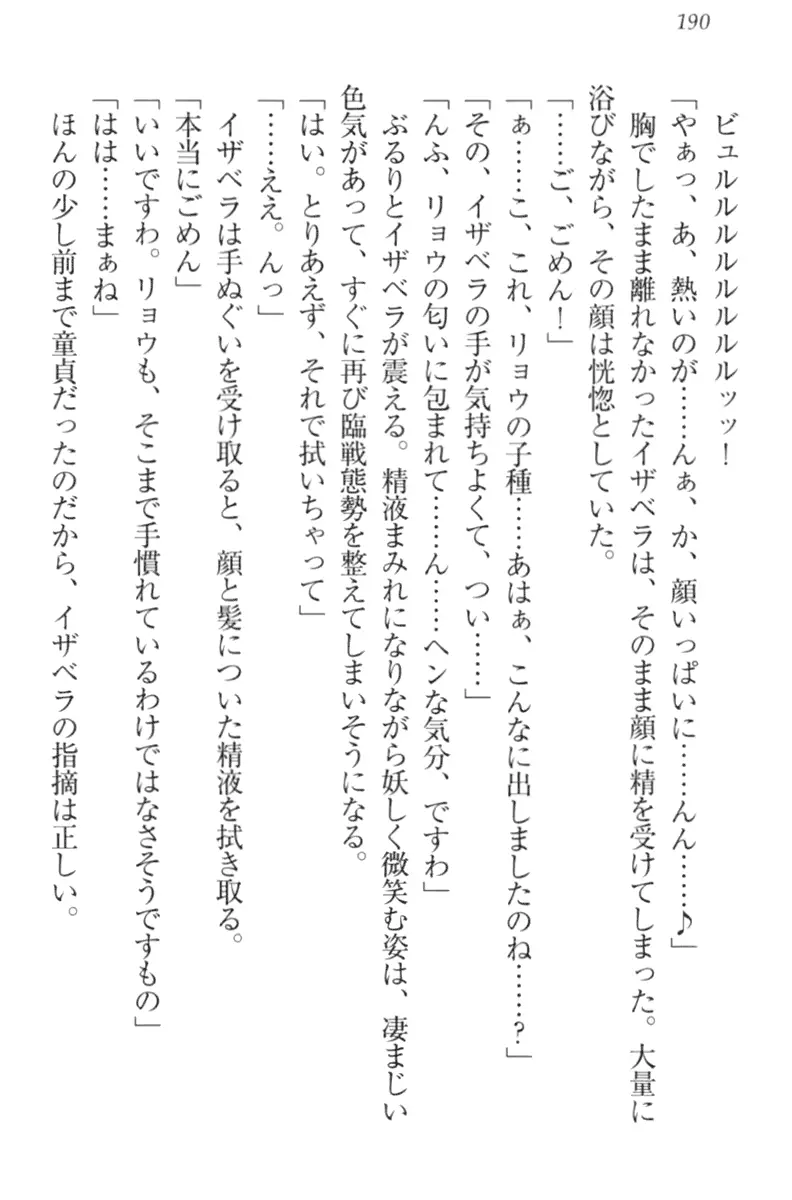 190
ビュルルルルルルルルッッ！
「やぁっ、あ、熱いのが……んぁ、か、顔いっぱいに……んん……♪」
胸でしたまま離れなかったイザベラは、そのまま顔に精を受けてしまった。大量に
浴びながら、その顔は恍惚としていた。
「……ご、ごめん！」
「ぁ……こ、これ、リョウの子種……あはぁ、こんなに出しましたのね……？」
「その、イザベラの手が気持ちよくて、つい……」
「んふ、リョウの匂いに包まれて……ん……ヘンな気分、ですわ」
ぶるりとイザベラが震える。精液まみれになりながら妖しく微笑む姿は、凄まじい
色気があって、すぐに再び臨戦態勢を整えてしまいそうになる。
「はい。とりあえず、それで拭いちゃって」
「……ええ。んっ」
イザベラは手ぬぐいを受け取ると、顔と髪についた精液を拭き取る。
「本当にごめん」
「いいですわ。リョウも、そこまで手慣れているわけではなさそうですもの」
「はは……まぁね」
ほんの少し前まで童貞だったのだから、イザベラの指摘は正しい。